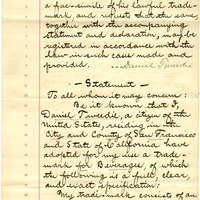 a fac-simile of his lawful trade-
mark, and request that the same,
together with the accompanying
statement and declaration, may be
registered in accordance with the
law in such case made and
provided. Daniel Tweedie
Statement
To all whom it may concern:
Be it known that I,
Daniel Tweedie, a citizen of the
United States, residing in the
City and County of San Francisco
and State of California have
adopted for my use a trade-
mark for Beverages, of which
the following is a full, clear,
and exact specification:
My trade-mark consists of an